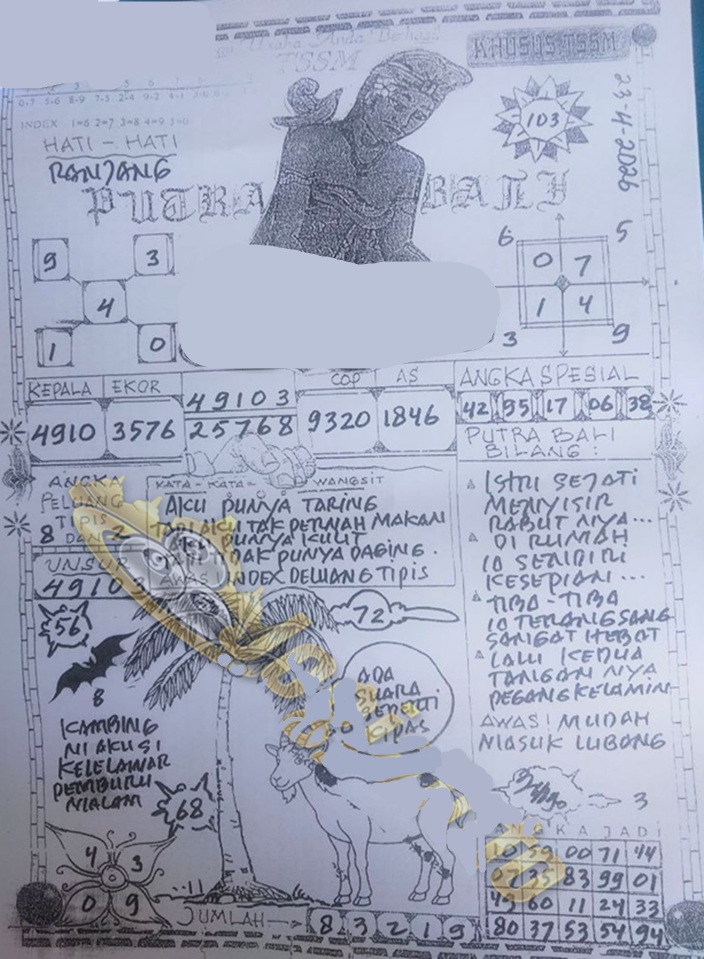 Usaha Anda Berhasil
TSSM
KHUSUS TSSM
23-4-2026
0-7 5-6 8-9 7-5 2-4 9-2
INDEX 1=6 2=7 3=8 4=9 5=0
HATI - HATI
RANJANG
103
PUTRA BALI
9 3
4
1 0
6 5
0 7
1 4
3 9
KEPALA EKOR
4910 3576
49103
25768
COP AS
9320 1846
ANGKA SPESIAL
42 95 17 06 38
PUTRA BALI
BILANG :
ISTRI SEJATI
MENYISIR
RABUT NYA...
DI RUMAH
IO SENDIRI
KESEPIAN...
TIBA-TIBA
IO TERANGSANG
SANGAT HEBAT
LALU KEDUA
TANGAN NYA
PEGANG KELAMIN
AWAS! MUDAH
MASUK LUBANG
ANGKA
PELUANG
TIPIS
8 DAN 2
UNSUR
4910
KATA - KATA WANGSIT
AKU PUNYA TARING
TAPI AKU TAK PERNAH MAKAN
PUNYA KULIT
TIDAK PUNYA DAGING.
AWAS INDEX DELUANG TIPIS
56
72
8
ADA
SUARA
SEPERTI
KIPAS
KAMBING
NI AKU SI
KELELAWAR
PEMBURU
MALAM
68
4 3
0 9
11
JUMLAH
8 3 2 1 9
3
ANGKA JADI
10 59 00 71 44
07 35 83 99 01
49 60 11 24 33
80 37 53 54 94